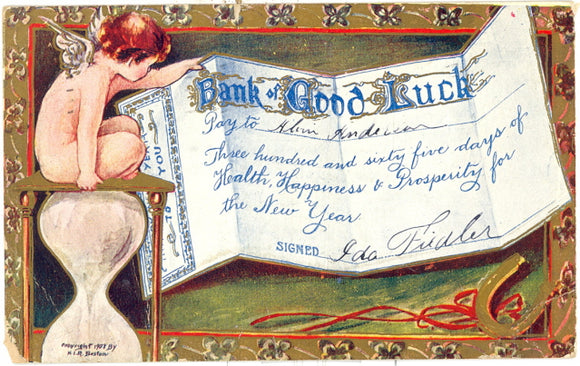 Bank of Good Luck
Pay to Alvin Anderson
Three hundred and sixty five days of
Health, Happiness & Prosperity for
the New Year
SIGNED Ida Fiedler
YEAR
TO YOU
COPYRIGHT 1907 BY
H.I.R. Boston